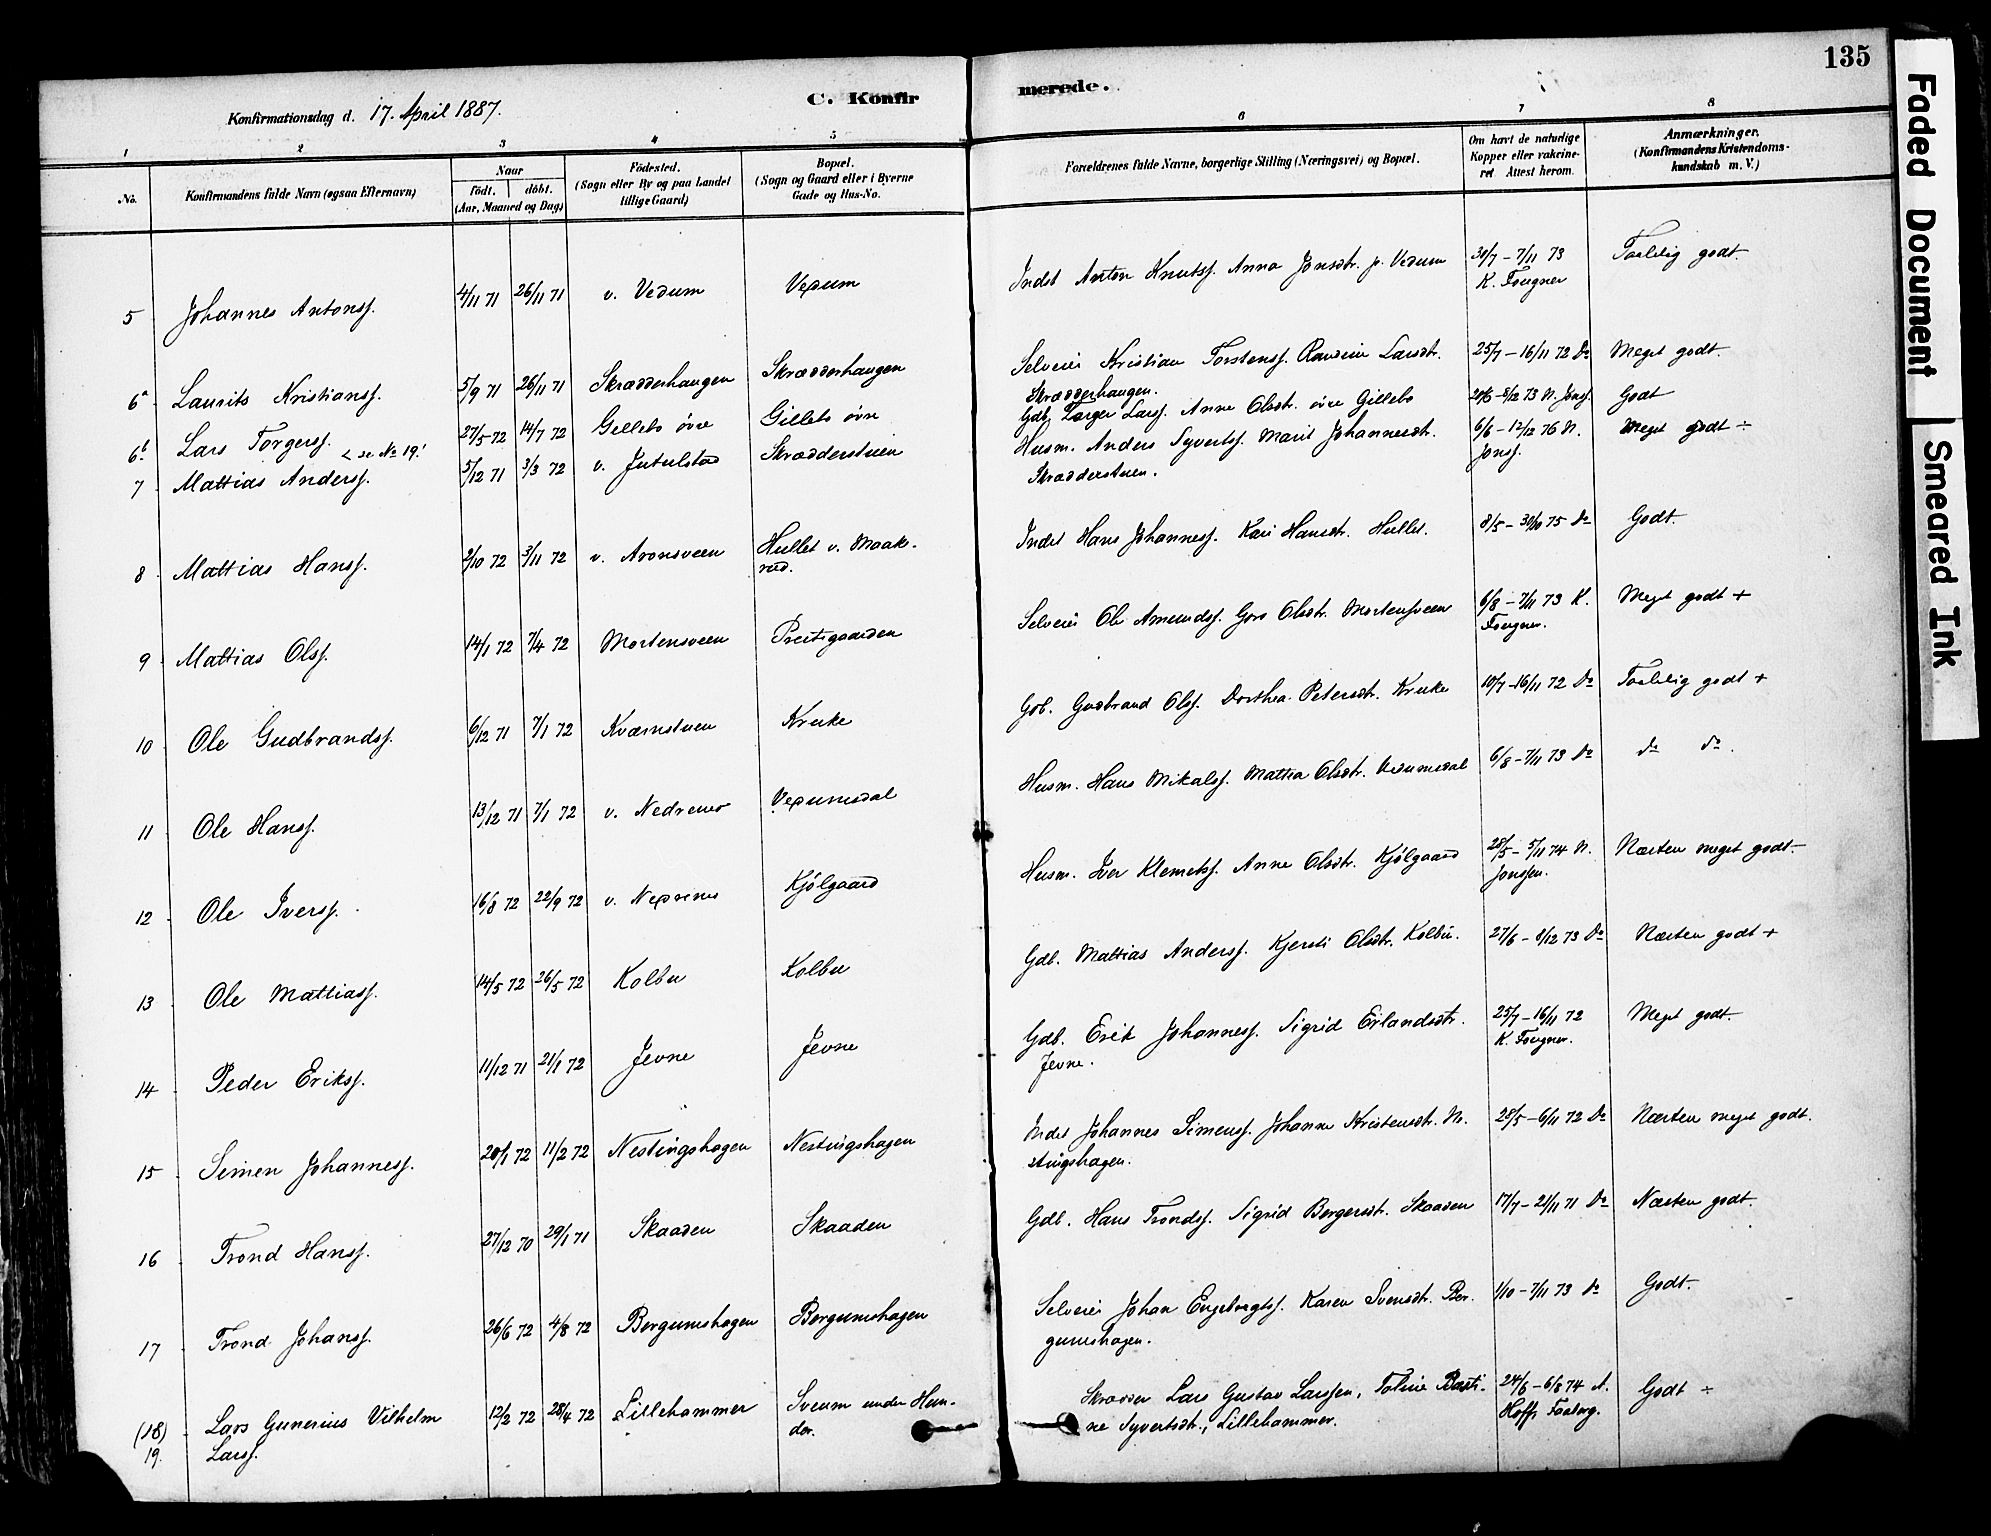 135
C. Konfirmerede.
Konfirmationsdag d. 17. April 1887.
1 2 3 4 5 6 7 8
No.
Konfirmandens fulde Navn (ogsaa Efternavn)
Naar
født. døbt.
(Aar, Maaned og Dag)
Fødested.
(Sogn eller By og paa Landet
tillige Gaard)
Bopæl.
(Sogn og Gaard eller i Byerne
Gade og Hus-No.
Forældrenes fulde Navne, borgerlige Stilling (Næringsvei) og Bopæl.
Om havt de naturlige
Kopper eller vakcine-
ret. Attest herom.
Anmærkninger.
(Konfirmandens Kristendoms-
kundskab m. V.)
5 Johannes Antonsſ. 4/11 71 26/11 71 v. Vedum Vedum Indst Anton Knutsſ. Anna Jonsdtr. p. Vedum 30/7 - 7/11 73 Taalelig godt -
K. Fougner
6a Laurits Kristiansſ. 5/9 71 26/11 71 Skrædderhaugen Skrædderhaugen Selveier Kristian Torstensſ. Larsdtr. 25/7 - 16/11 72 Do Meget godt.
Skrædderhaugen.
6b Lars Torgersſ. < se No 19! 27/5 72 14/7 72 Gillebo øvre Gillebo øvre Gdb. Torger Larsſ. Anne Olsdtr. øvre Gillebo 20/6 - 8/12 73 N. Jonsſ. Godt
7 Mattias Andersſ. 5/12 71 3/3 72 v. Jutulstad Skrædderstuen Husm. Anders Syvertsſ. Marit Johannesdtr. 6/6 - 12/12 76 N. Meget godt ÷
Skrædderstuen. Jonsſ.
8 Mattias Hansſ. 2/10 72 3/11 72 v. Aronsveen Hullet v. Maak-
rud. Indst Hans Johannesſ. Kari Hansdtr. Hullet. 8/5 - 30/10 75 Do Godt.
9 Mattias Olsſ. 14/1 72 7/4 72 Mortensveen Prestgaarden Selveier Ole Amundsſ. Goro Olsdtr. Mortensveen 6/8 - 7/11 73 K. Meget godt +
Fougner.
10 Ole Gudbrandsſ. 6/12 71 7/1 72 Kværnstuen Kruke Gdb. Gudbrand Olsſ. Dorthea Petersdtr. Kruke 10/7 - 16/11 72 Do Taalelig godt +
11 Ole Hansſ. 13/12 71 7/1 72 v. Nedrenes Vedumsdal Husm. Hans Mikalsſ. Mattea Olsdtr. Vedumsdal 6/8 - 7/11 73 Do do do.
12 Ole Iversſ. 16/8 72 22/9 72 v. Nedrenes Kjølgaard Husm. Iver Klemetsſ. Anne Olsdtr. Kjølgaard 28/5 - 5/11 74 N. Næsten meget godt -
Jonssen.
13 Ole Mattiasſ. 14/5 72 26/5 72 Kolbu Kolbu Gdb. Mattias Andersſ. Kjersti Olsdtr. Kolbu. 27/6 - 8/12 73 Do Næsten godt +
14 Peder Eriksſ. 11/12 71 21/1 72 Jevne Jevne Gdb. Erik Johannesſ. Sigrid Erlandsdtr. 25/7 - 16/11 72 Meget godt.
Jevne. K. Fougner.
15 Simen Johannesſ. 20/1 72 11/2 72 Nestingshagen Nestingshagen Indst Johannes Simensſ. Johanne Kristensdtr. Ne- 28/5 - 6/11 72 Do Næsten meget godt.
stingshagen.
16 Trond Hansſ. 27/12 70 29/1 71 Skaaden Skaaden Gdb. Hans Trondsſ. Sigrid Bergersdtr. Skaaden 17/7 - 21/11 71 Do Næsten godt.
17 Trond Johansſ. 26/6 72 4/8 72 Bergumshagen Bergumshagen Selveier Johan Engebregtsſ. Karen Svensdtr. Ber- 1/10 - 7/11 73 Do Godt -
gumshagen.
(18) Lars Gunerius Vilhelm 12/2 72 28/4 72 Lillehammer Sveum under Hun-
der. Skræder Lars Gustav Larssen, Toline Basti- 24/6 - 6/8 74 A. Godt ÷
19. Larsſ. ne Syvertsdtr., Lillehammer. Hoff, Faaberg.
Faded Document
Smeared Ink